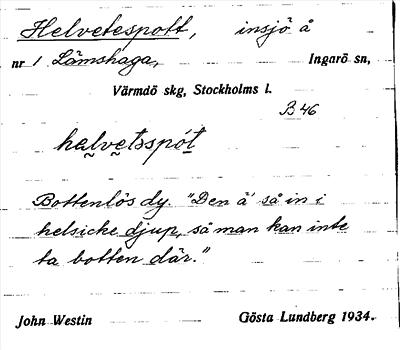 Helvetespott, insjö å
nr 1 Lämshaga, Ingarö sn,
Värmdö skg, Stockholms l.
B 46
hęlvętsspót
Bottenlös dy. "Den ä' så in i
helsicke djup, så man kan inte
ta botten där."
John Westin Gösta Lundberg 1934.